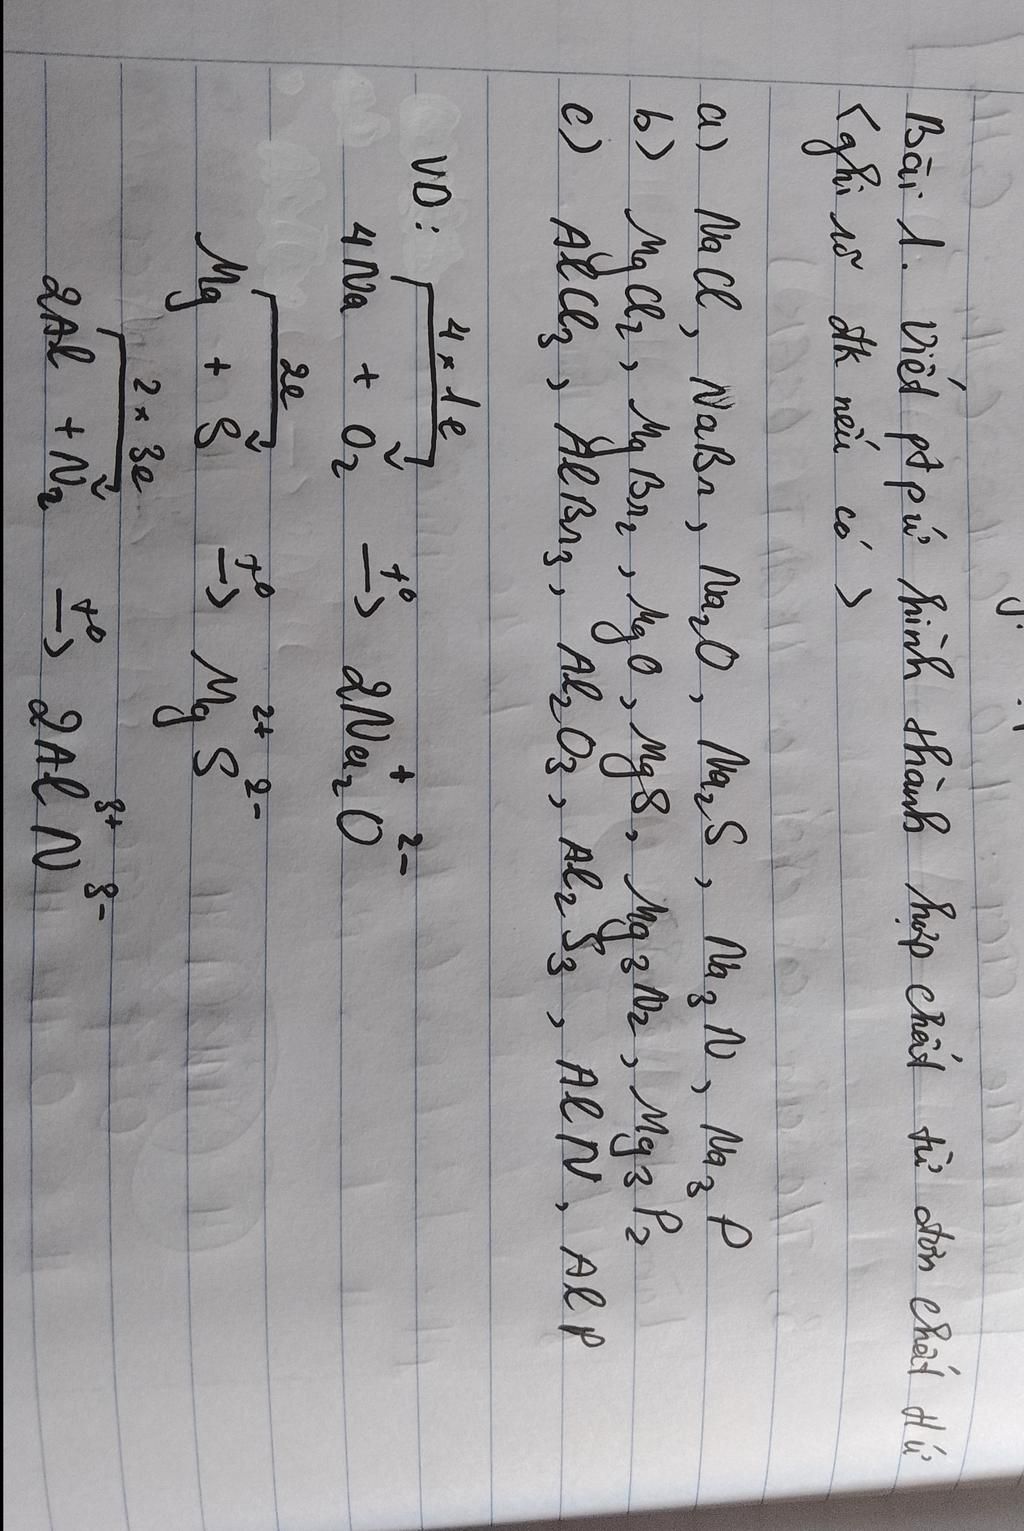 Bài 1. Viết ptpứ hình thành hợp chất từ đơn chất t/ứ
<ghi rõ đk nếu có>
a) NaCl, NaBr, Na₂O, Na₂S, Na₃N, Na₃P
b) MgCl₂, MgBr₂, MgO, MgS, Mg₃N₂, Mg₃P₂
c) AlCl₃, AlBr₃, Al₂O₃, Al₂S₃, AlN, AlP
VD:
4 × 1e
4Na + O₂ →(t⁰) 2Na₂⁺O²⁻
2e
Mg + S →(t⁰) Mg²⁺S²⁻
2 × 3e
2Al + N₂ →(t⁰) 2Al³⁺N³⁻